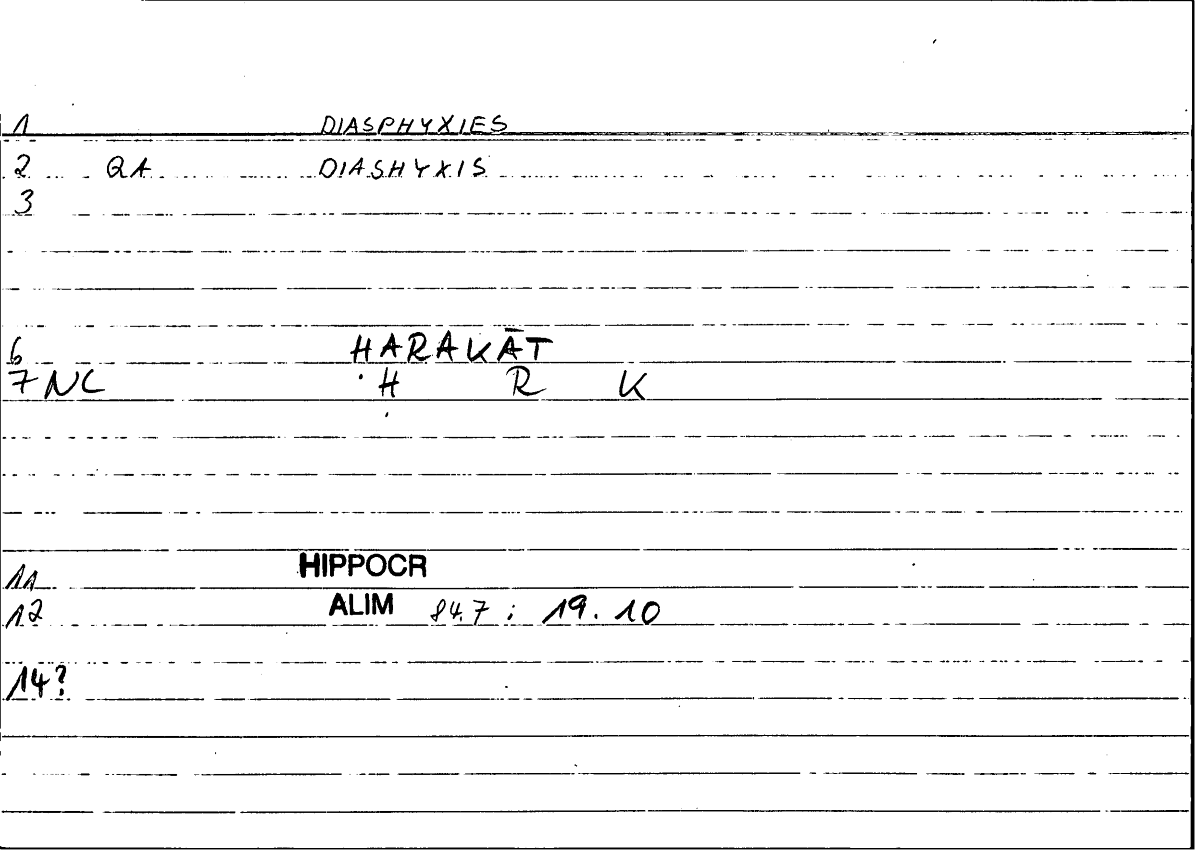 1 DIASPHYXIES
2 QA DIASHYXIS
3
6 HARAKĀT
7 NC Ḥ R K
11 HIPPOCR
12 ALIM 84.7 : 19.10
14?